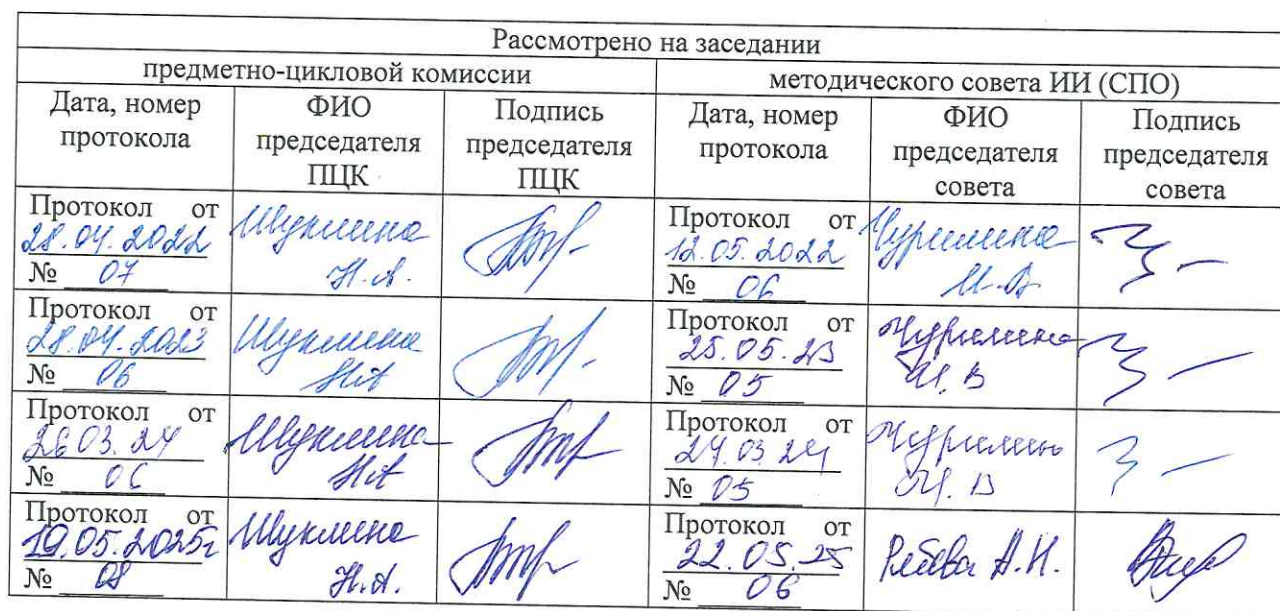 Рассмотрено на заседании
предметно-цикловой комиссии
методического совета ИИ (СПО)
Дата, номер протокола
ФИО председателя ПЦК
Подпись председателя ПЦК
Дата, номер протокола
ФИО председателя совета
Подпись председателя совета
Протокол от
28.04.2022
№ 07
Шуклина
Н.А.
Протокол от
12.05.2022
№ 06
Чурилина
И.В
Протокол от
28.04.2023
№ 06
Шуклина
НА
Протокол от
25.05.23
№ 05
Чурилина
И.В
Протокол от
26.03.24
№ 06
Шуклина
НА
Протокол от
№ 05
И.В
Протокол от
19.05.2025г
№ 08
Шуклина
Н.А.
Протокол от
22.05.25
№ 06
А.Н.